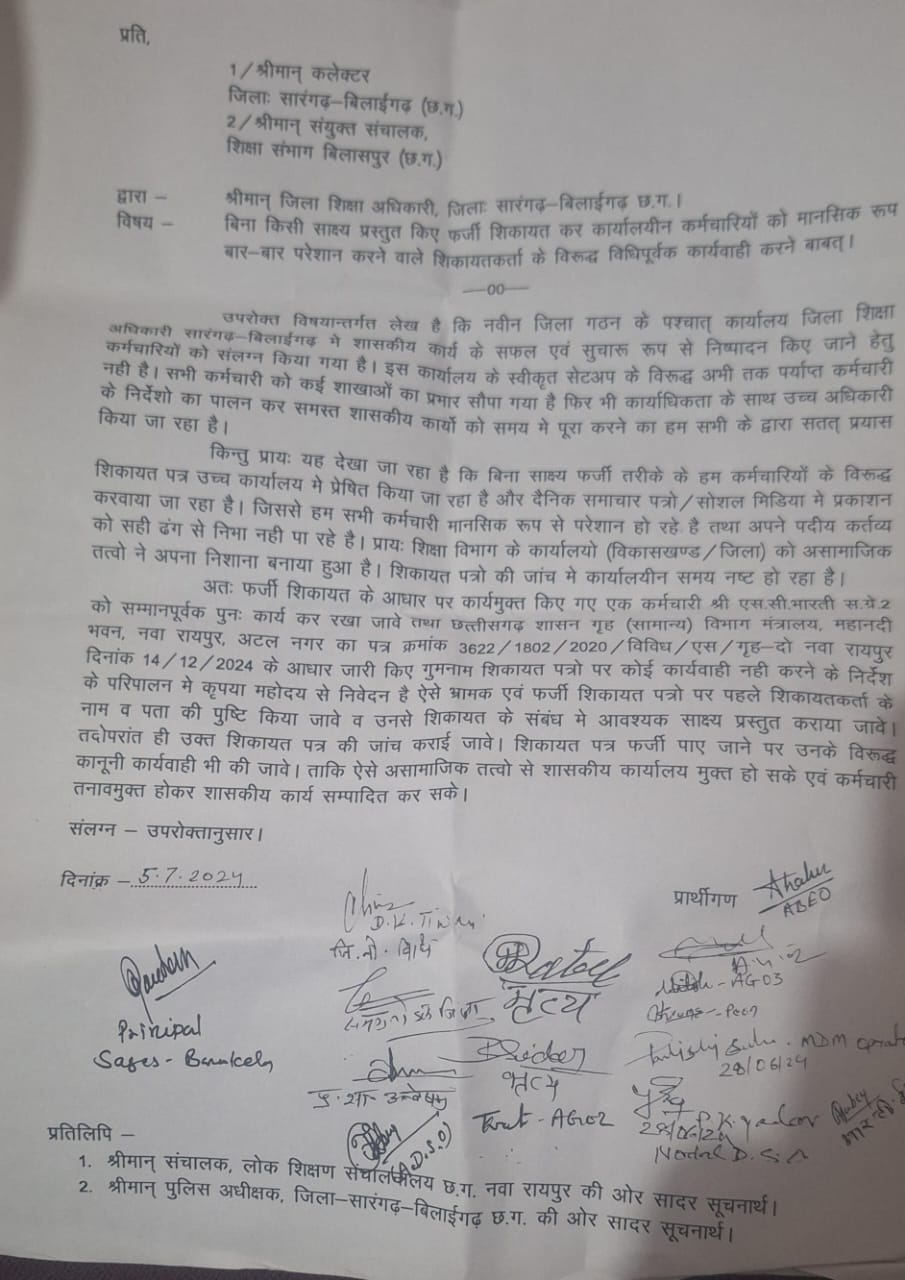 प्रति,
1/श्रीमान् कलेक्टर
जिलाः सारंगढ़–बिलाईगढ़ (छ.ग.)
2/श्रीमान् संयुक्त संचालक,
शिक्षा संभाग बिलासपुर (छ.ग.)
द्वारा – श्रीमान् जिला शिक्षा अधिकारी, जिलाः सारंगढ़–बिलाईगढ़ छ.ग.।
विषय – बिना किसी साक्ष्य प्रस्तुत किए फर्जी शिकायत कर कार्यालयीन कर्मचारियों को मानसिक रूप
बार–बार परेशान करने वाले शिकायतकर्ता के विरूद्ध विधिपूर्वक कार्यवाही करने बाबत्।
—00—
उपरोक्त विषयान्तर्गत लेख है कि नवीन जिला गठन के पश्चात् कार्यालय जिला शिक्षा
अधिकारी सारंगढ़–बिलाईगढ़ मे शासकीय कार्य के सफल एवं सुचारू रूप से निष्पादन किए जाने हेतु
कर्मचारियों को संलग्न किया गया है। इस कार्यालय के स्वीकृत सेटअप के विरूद्ध अभी तक पर्याप्त कर्मचारी
नही है। सभी कर्मचारी को कई शाखाओं का प्रभार सौपा गया है फिर भी कार्याधिकता के साथ उच्च अधिकारी
के निर्देशो का पालन कर समस्त शासकीय कार्यो को समय मे पूरा करने का हम सभी के द्वारा सतत् प्रयास
किया जा रहा है।
किन्तु प्रायः यह देखा जा रहा है कि बिना साक्ष्य फर्जी तरीके के हम कर्मचारियों के विरूद्ध
शिकायत पत्र उच्च कार्यालय मे प्रेषित किया जा रहा है और दैनिक समाचार पत्रो/सोशल मिडिया मे प्रकाशन
करवाया जा रहा है। जिससे हम सभी कर्मचारी मानसिक रूप से परेशान हो रहे है तथा अपने पदीय कर्तव्य
को सही ढंग से निभा नही पा रहे है। प्रायः शिक्षा विभाग के कार्यालयो (विकासखण्ड/जिला) को असामाजिक
तत्वो ने अपना निशाना बनाया हुआ है। शिकायत पत्रो की जांच मे कार्यालयीन समय नष्ट हो रहा है।
अतः फर्जी शिकायत के आधार पर कार्यमुक्त किए गए एक कर्मचारी श्री एस.सी.भारती स.ग्रे.2
को सम्मानपूर्वक पुनः कार्य कर रखा जावे तथा छत्तीसगढ़ शासन गृह (सामान्य) विभाग मंत्रालय, महानदी
भवन, नवा रायपुर, अटल नगर का पत्र क्रमांक 3622/1802/2020/विविध/एस/गृह–दो नवा रायपुर
दिनांक 14/12/2024 के आधार जारी किए गुमनाम शिकायत पत्रो पर कोई कार्यवाही नही करने के निर्देश
के परिपालन मे कृपया महोदय से निवेदन है ऐसे भ्रामक एवं फर्जी शिकायत पत्रो पर पहले शिकायतकर्ता के
नाम व पता की पुष्टि किया जावे व उनसे शिकायत के संबंध मे आवश्यक साक्ष्य प्रस्तुत कराया जावे।
तदोपरांत ही उक्त शिकायत पत्र की जांच कराई जावे। शिकायत पत्र फर्जी पाए जाने पर उनके विरूद्ध
कानूनी कार्यवाही भी की जावे। ताकि ऐसे असामाजिक तत्वो से शासकीय कार्यालय मुक्त हो सके एवं कर्मचारी
तनावमुक्त होकर शासकीय कार्य सम्पादित कर सके।
संलग्न – उपरोक्तानुसार।
दिनांक – 5.7.2024
प्रार्थीगण
ABEO
D.K. Tiwari
AGO3
भृत्य
Peon
Principal
Sages - Baramkela
MDM
28/06/24
भृत्य
AGO2
P.K. yadav
28/06/24
Nodal
(A.D.S.O)
प्रतिलिपि –
1. श्रीमान् संचालक, लोक शिक्षण संचालनालय छ.ग. नवा रायपुर की ओर सादर सूचनार्थ।
2. श्रीमान् पुलिस अधीक्षक, जिला–सारंगढ़–बिलाईगढ़ छ.ग. की ओर सादर सूचनार्थ।